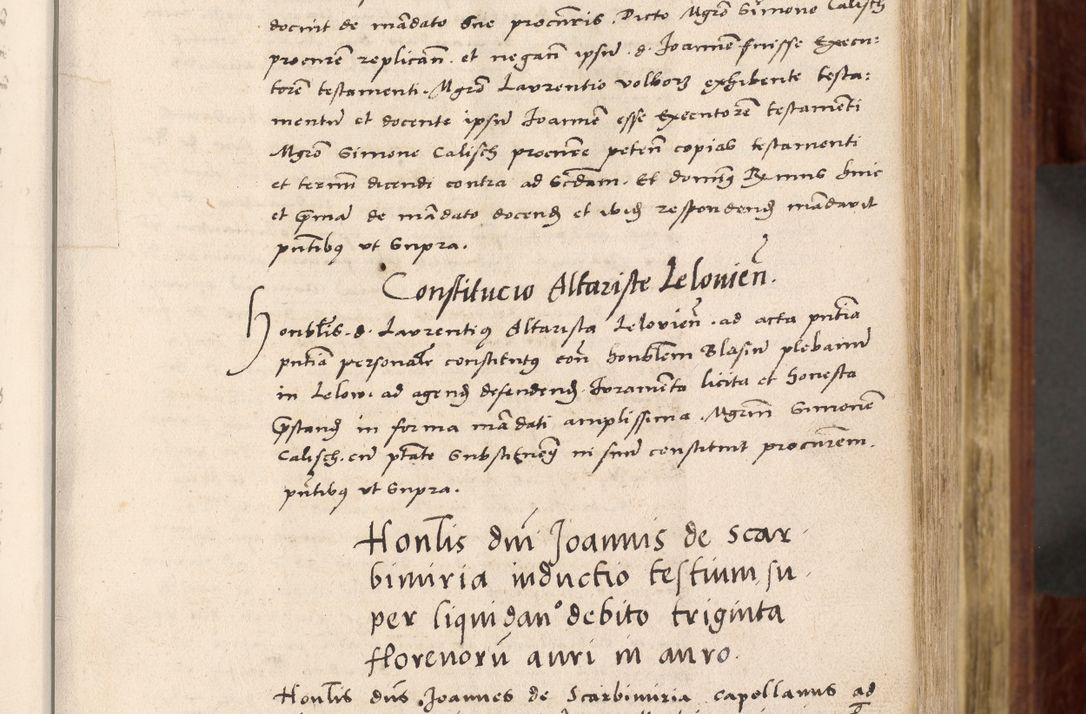 docuit de mādato sue procurīs. Dicto Mgrō Simone Calisch
procurē replicāñ. et negañ ipsū d. Joannē fuisse Execu-
torē testamenti. Mgrō Laurentio volborz exhibente testa-
mentū et docente ipsū Joannē esse Executorē testamēti
Mgrō Simone Calisch procurē peteñ copias testamenti
et termī dicendi contra ad Scdam. Et domiꝯ huic
et mādato docenđ et respondenđ mādavit
pñtibꝯ ut supra.
Constitucio Altariste Leloviēñ.
Honblis. d. Laurentiꝯ Altarista Leloviēñ. ad acta pñtia
pñtia personalr constitutꝯ honblem Blasiū plebanū
in Lelow. ad agenđ defendenđ. Juramēta licita et honesta
pstanđ in forma mādati amplissima. Mgrm Simonē
Calisch. cū ptāte in suū constituit procurem.
pñtibꝯ ut supra.
Honlis dñi Joannis de Scar-
bimiria inductio testium su-
per liquidanº debito triginta
florenorū auri in auro.
Honlis dns Joannes de Scarbimiria capellanus ad